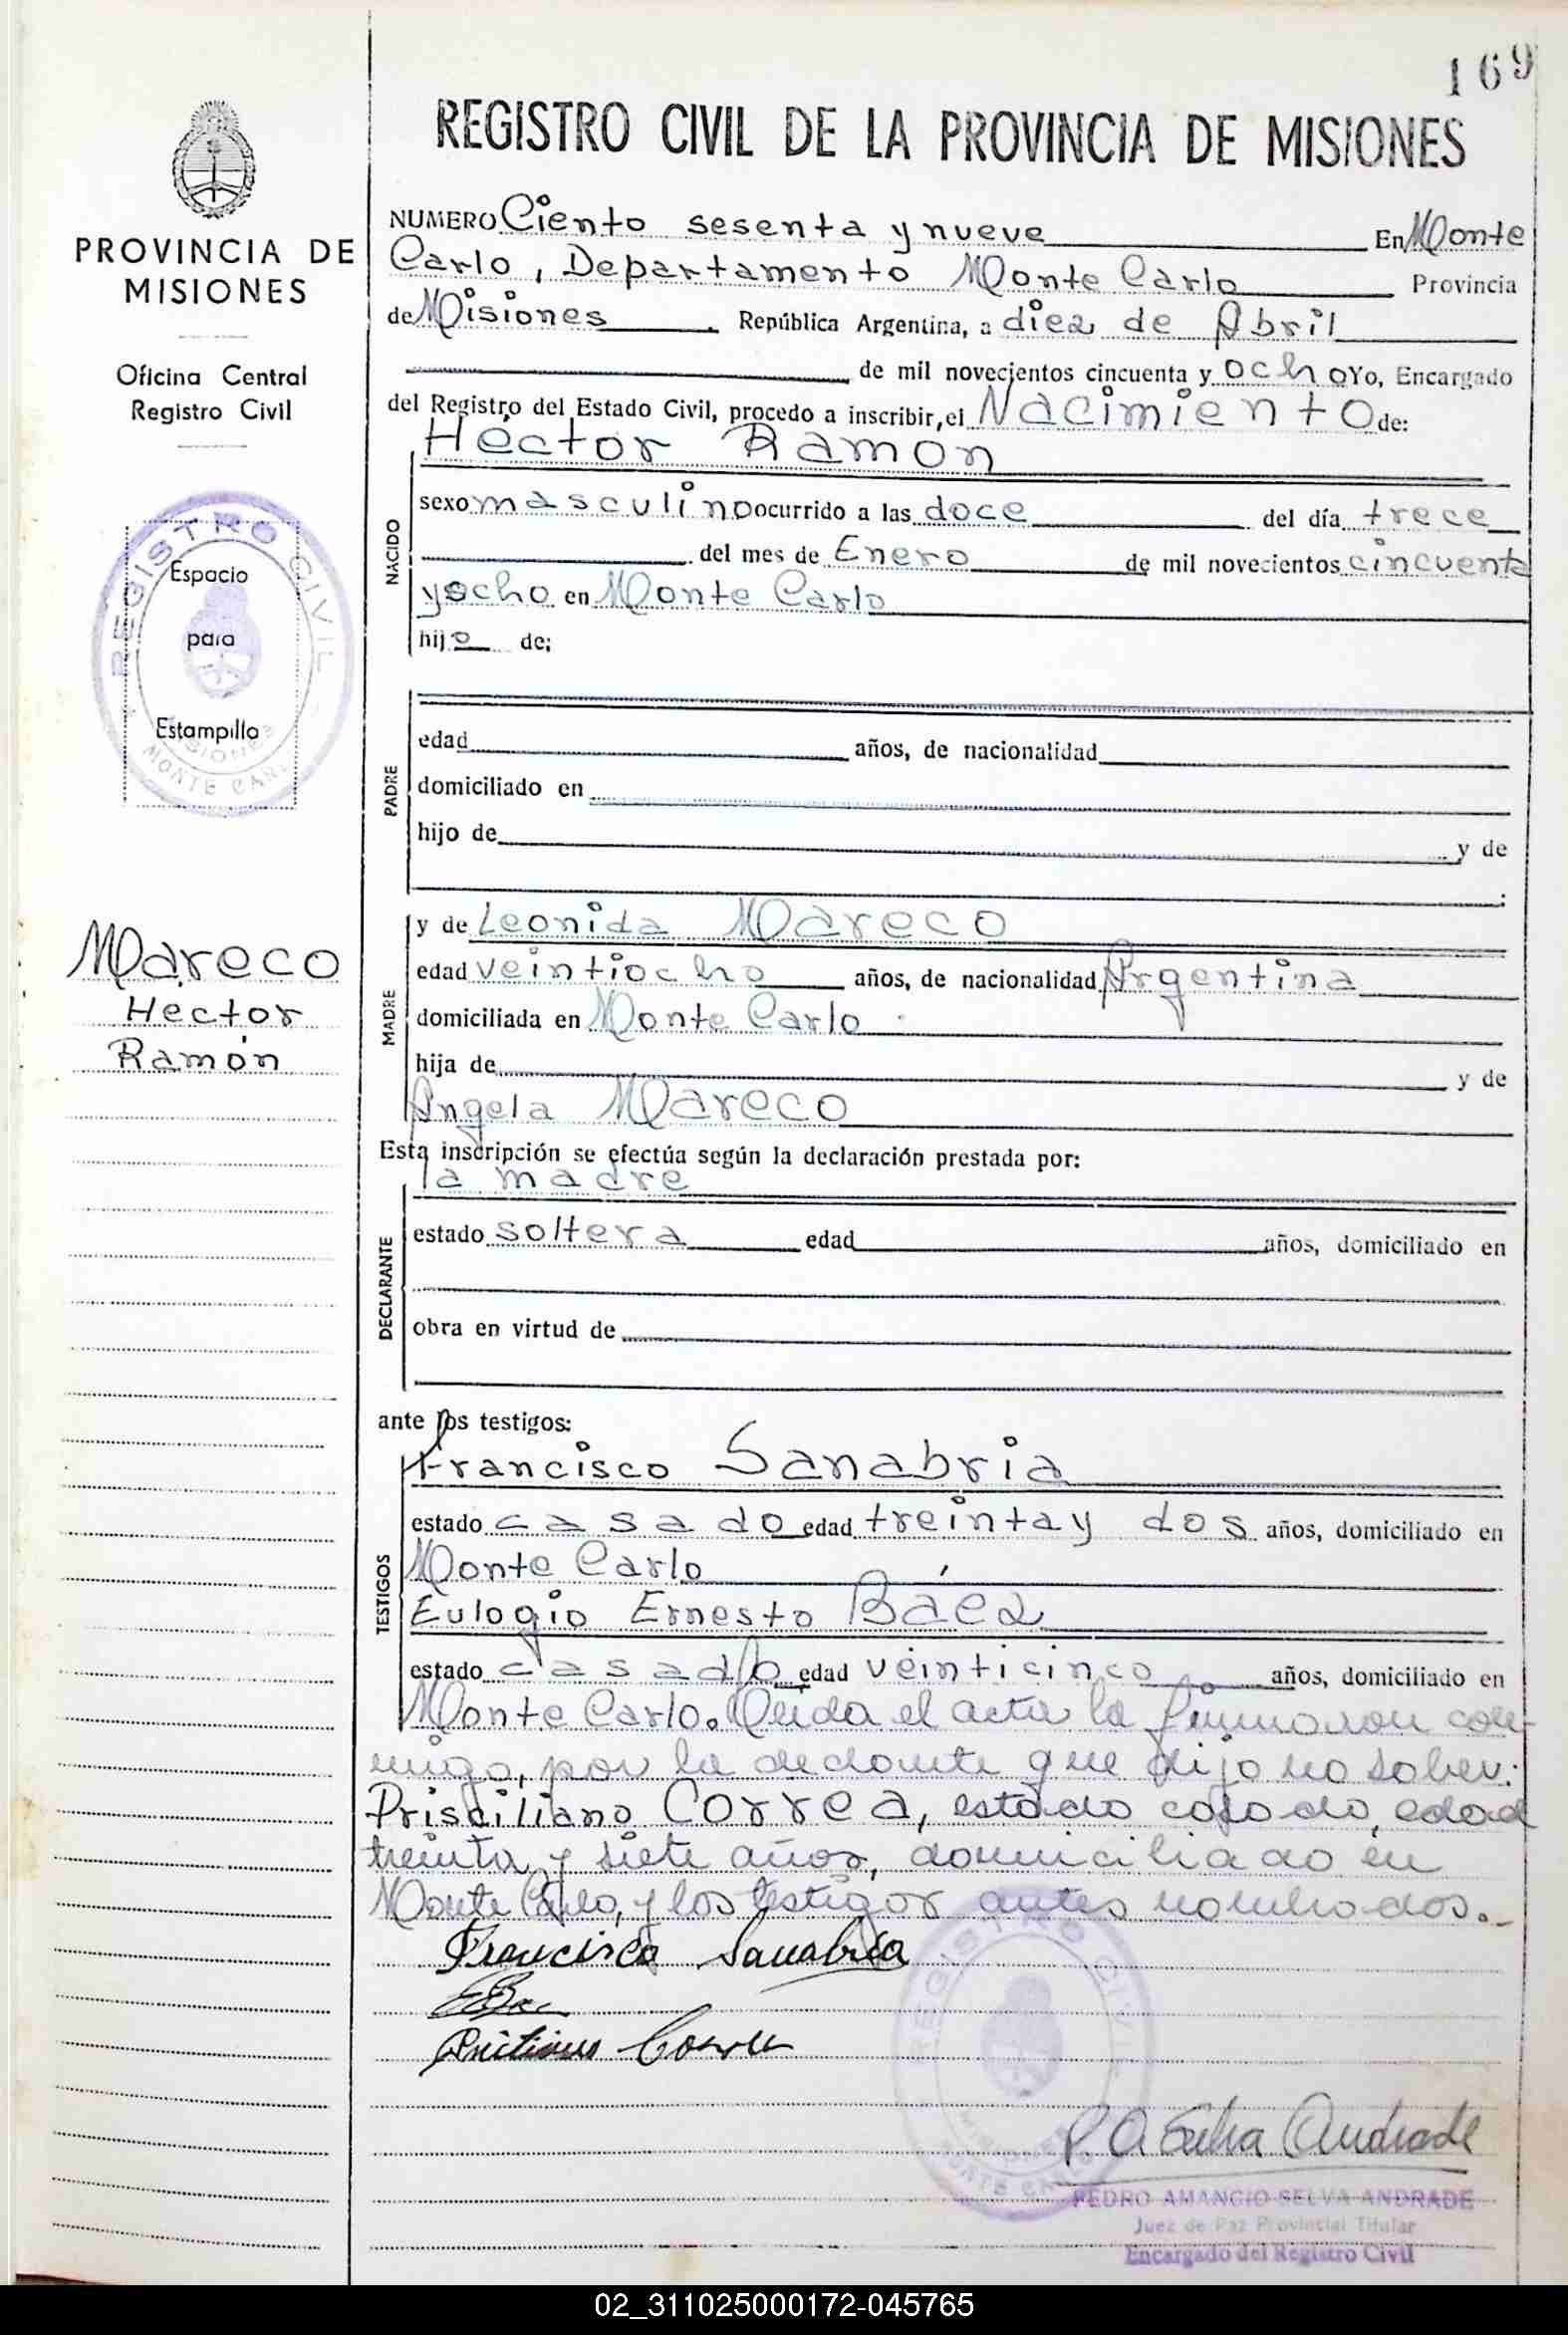 169
REGISTRO CIVIL DE LA PROVINCIA DE MISIONES
PROVINCIA DE
MISIONES
Oficina Central
Registro Civil
REGISTRO CIVIL
Espacio
para
Estampilla
MISIONES
MONTE CARLO
Mareco
Hector
Ramón
NUMERO Ciento sesenta y nueve En Monte
Carlo, Departamento Monte Carlo Provincia
de Misiones República Argentina, a diez de Abril
de mil novecientos cincuenta y ocho Yo, Encargado
del Registro del Estado Civil, procedo a inscribir, el Nacimiento de:
NACIDO
Héctor Ramón
sexo masculino ocurrido a las doce del día trece
del mes de Enero de mil novecientos cincuenta
y ocho en Monte Carlo
hijo de:
PADRE
edad años, de nacionalidad
domiciliado en
hijo de y de
MADRE
y de Leonida Mareco
edad veintiocho años, de nacionalidad Argentina
domiciliada en Monte Carlo
hija de y de
Angela Mareco
Esta inscripción se efectúa según la declaración prestada por:
DECLARANTE
la madre
estado soltera edad años, domiciliado en
obra en virtud de
ante los testigos:
TESTIGOS
Francisco Sanabria
estado casado edad treinta y dos años, domiciliado en
Monte Carlo
Eulogio Ernesto Báez
estado casado edad veinticinco años, domiciliado en
Monte Carlo. Leida el acta la firmaron con-
migo, por la declarante que dijo no saber:
Prisciliano Correa, estado casado, edad
treinta y siete años, domiciliado en
Monte Carlo, y los testigos antes nombrados.-
Francisco Sanabria
Correa
REGISTRO CIVIL
MISIONES
MONTE CARLO
P. A. Selva Andrade
PEDRO AMANCIO SELVA ANDRADE
Juez de Paz Provincial Titular
Encargado del Registro Civil
02_311025000172-045765